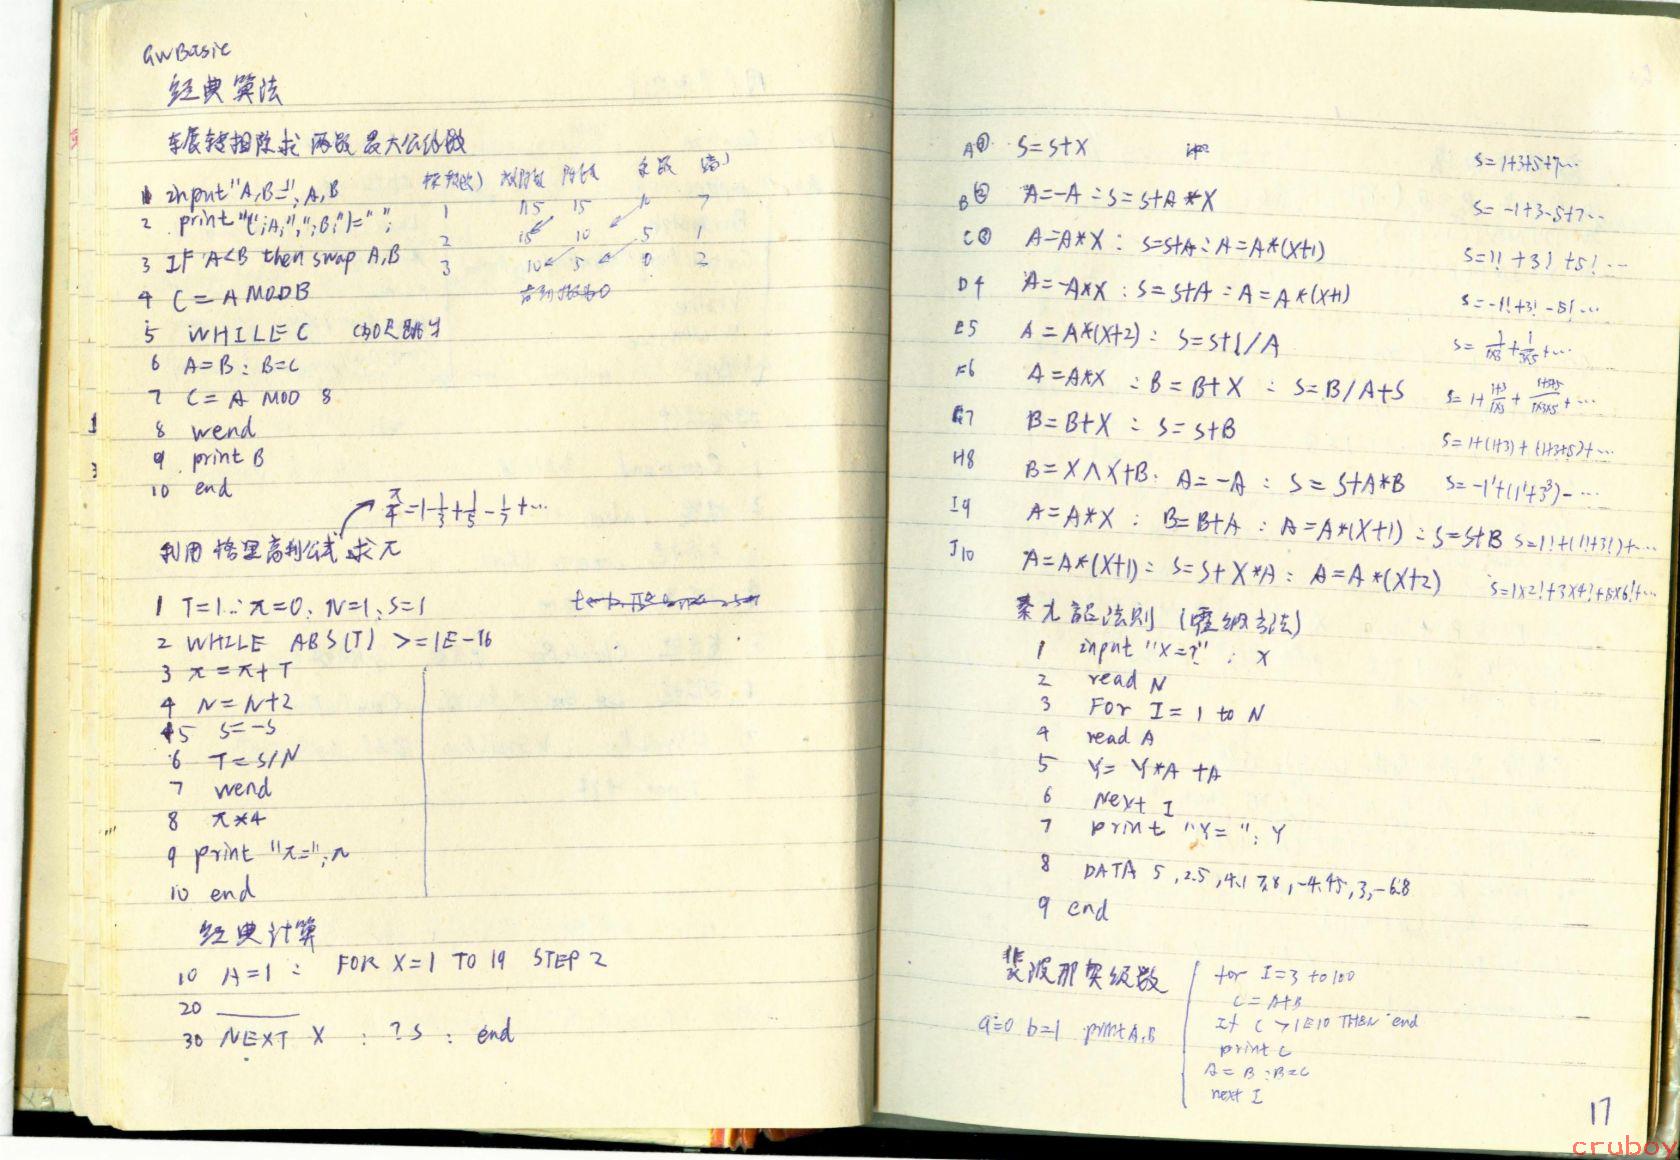 GWBasic
经典算法
辗转相除求两数最大公约数
1 input"A,B=";A,B
2 print"(";A;",";B;")=";
3 IF A<B then swap A,B
4 C=A MOD B
5 WHILE C
6 A=B:B=C
7 C=A MOD B
8 wend
9 print B
10 end
被除数 除数 余数 商
1 115 15 10 7
2 15 10 5 1
3 10 5 0 2
π/4=1-1/3+1/5-1/7+…
利用格里高利公式求π
1 T=1:π=0:N=1:S=1
2 WHILE ABS(T)>=1E-16
3 π=π+T
4 N=N+2
5 S=-S
6 T=S/N
7 wend
8 π*4
9 print "π=";π
10 end
经典计算
10 A=1: FOR X=1 TO 19 STEP 2
20
30 NEXT X : ?S : end
A① S=S+X S=1+3+5+7…
B② A=-A:S=S+A*X S=-1+3-5+7…
C③ A=A*X:S=S+A:A=A*(X+1) S=1!+3!+5!…
D4 A=-A*X:S=S+A:A=A*(X+1) S=-1!+3!-5!…
E5 A=A*(X+2):S=S+1/A S=1/1×3+1/3×5+…
F6 A=A*X:B=B+X:S=B/A+S S=1+1+3/1×3+1+3+5/1×3×5+…
G7 B=B+X:S=S+B S=1+(1+3)+(1+3+5)+…
H8 B=X∧X+B:A=-A:S=S+A*B S=-1¹+(1¹+3³)-…
I9 A=A*X:B=B+A:A=A*(X+1):S=S+B S=1!+(1!+3!)+…
J10 A=A*(X+1):S=S+X*A:A=A*(X+2) S=1×2!+3×4!+5×6!+…
秦九韶法则(霍纳方法)
1 input "X=?";X
2 read N
3 For I=1 to N
4 read A
5 Y=Y*A+A
6 Next I
7 print "Y=";Y
8 DATA 5,2.5,4.1 7.8,-4.45,3,-6.8
9 end
斐波那契级数
a=0 b=1 print A,B
for I=3 to 100
C=A+B
If C>1E10 THEN end
print C
A=B:B=C
next I
17
cruboy